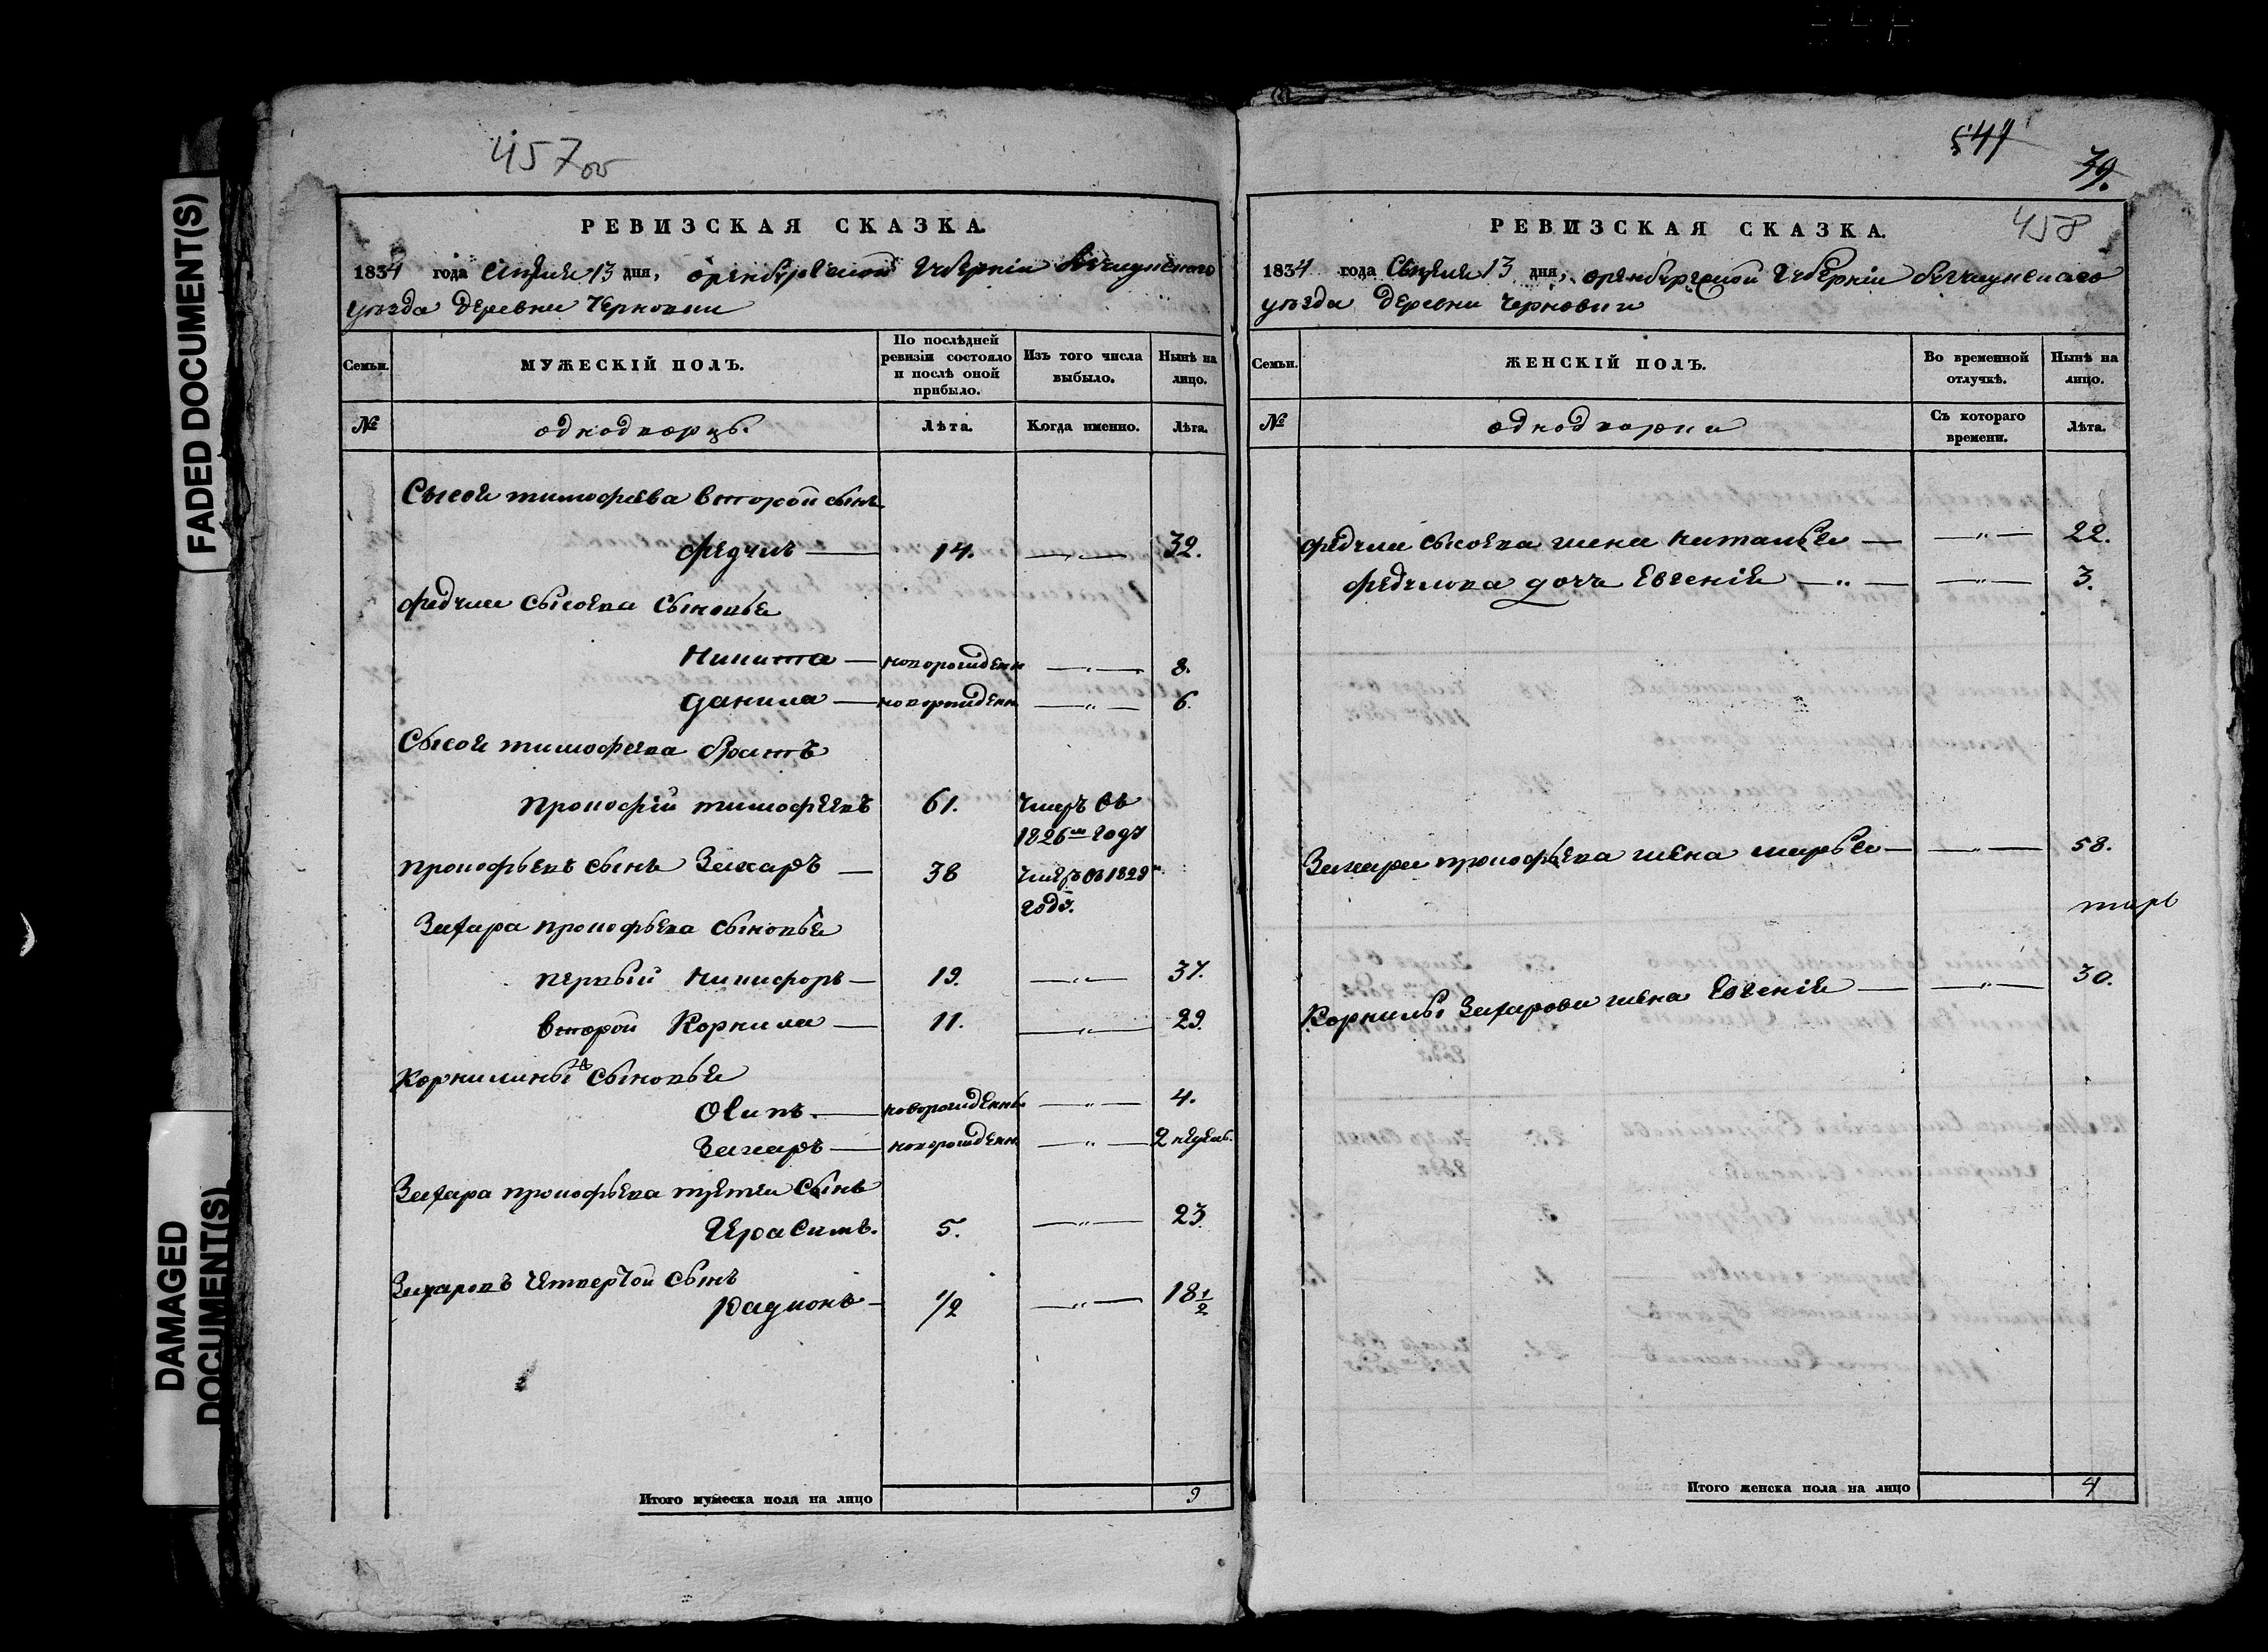 457об
РЕВИЗСКАЯ СКАЗКА.
1834 года Апреля 13 дня, оренбургской Губерніи
уѣзда деревни Черновки
Семьи. МУЖЕСКІЙ ПОЛЪ. По послѣдней ревизіи состояло и послѣ оной прибыло. Изъ того числа выбыло. Нынѣ на лицо.
№ однодворцы. Лѣта. Когда именно. Лѣта.
Сысоя тимофеева второй сынъ
федулъ — 14. —„— 32.
федула сысоева сыновья
Никита — новорожденн —„— 8.
данила — новорожденн —„— 6.
Сысоя тимофеева братъ
прокофій тимофеевъ 61. умеръ въ
1826м году
прокофьевъ сынъ Захаръ — 38 умеръ въ 1829м
году.
Захара прокофьева сыновья
первый Никифоръ — 19. —„— 37.
второй Корнила — 11. —„— 29.
Корнилины сыновья
Осипъ. — новорожденны. —„— 4.
Захаръ — новорожденн. —„— 2 недель.
Захара прокофьева третей сынъ
Герасимъ. 5. —„— 23.
Захаровъ четвертой сынъ
радионъ — 1/2 —„— 18 1/2
Итого мужеска пола на лицо 9
547
79.
458
РЕВИЗСКАЯ СКАЗКА.
1834 года Апреля 13 дня, оренбургской Губерніи
уѣзда деревни Черновки
Семьи. ЖЕНСКІЙ ПОЛЪ. Во временной отлучкѣ. Нынѣ на лицо.
№ однодворки Съ котораго времени. Лѣта.
федула сысоева жена наталья — —„— 22.
федулова дочь Евгенія —„— —„— 3.
Захара прокофьева жена марья — —„— 58.
Корнилы Захарова жена Евгенія — —„— 30.
Итого женска пола на лицо 4
FADED DOCUMENT(S)
DAMAGED
DOCUMENT(S)